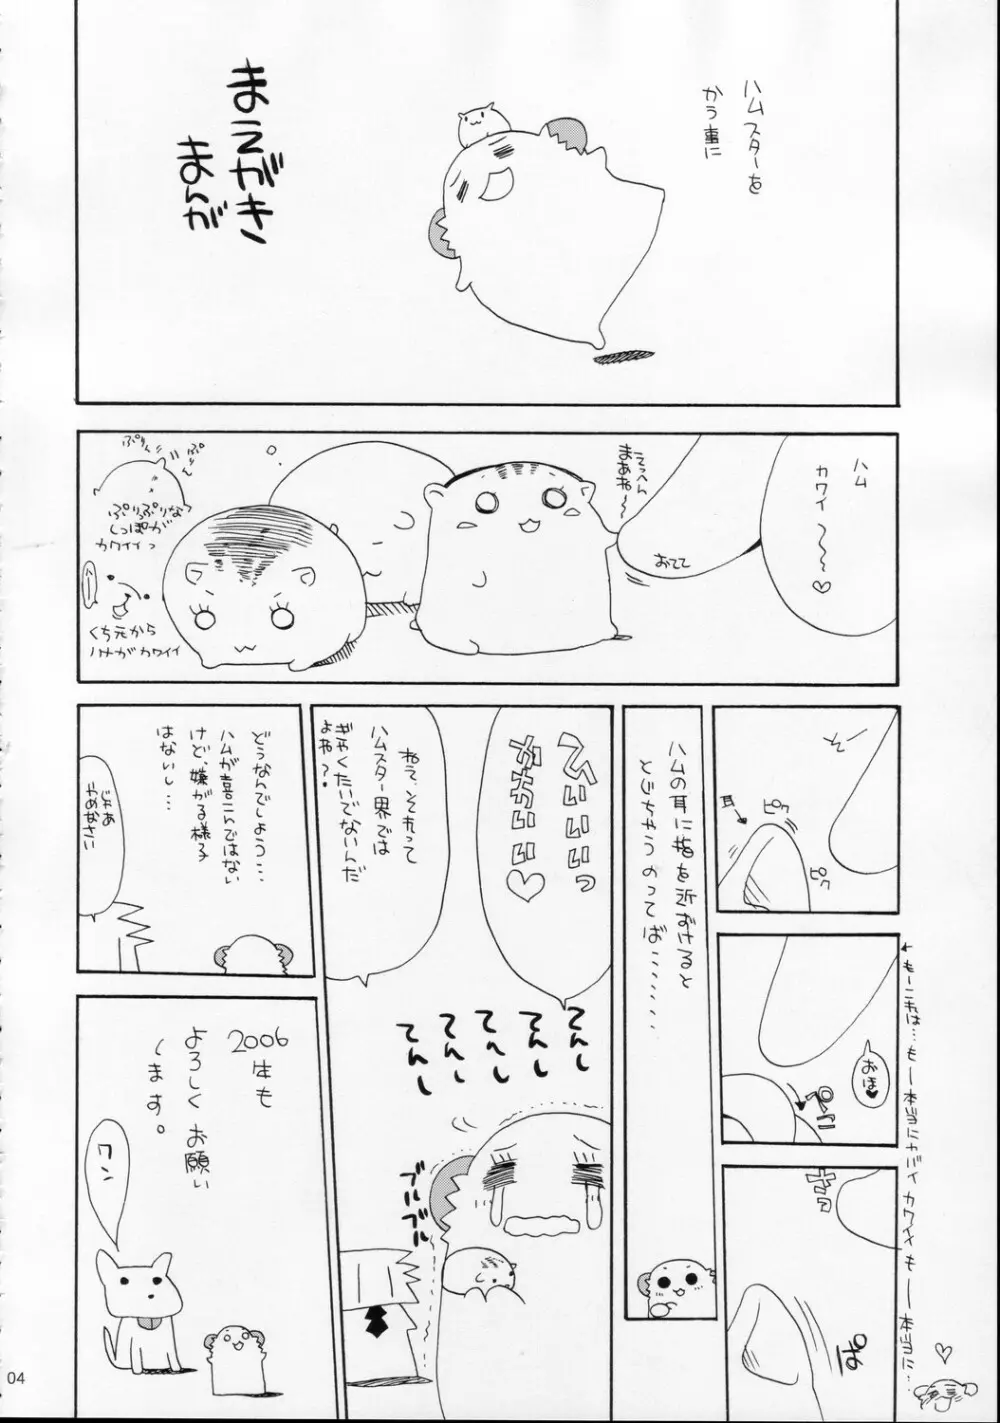 ハムスターを
かう事に
まえがき
まんが
ハム
カワイ〜〜♡
おてて
えっへん
まあね〜
ぷりん
ぷりん
ぷりっぷりな
しっぽが
カワイイっ
くち元から
ハナがカワイイ
そ〜
耳→
ピク
ピク
おほ♥
ぺこ
←もーこれは…もー本当にヤバイカワイイもー本当に…
♡
ハムの耳に指を近ずけると
とじちゃうのってば………
てんし
てんし
てんし
てんし
てんし
ブルブル
ブルブル
ねえ、それって
ハムスター界では
ぎゃくたいでないんだ
よね?
どうなんでしょう…
ハムが喜こんではない
けど、嫌がる様子
はないし…
じゃあ
やめなさい
2006
年も
よろしくお願い
します。
ワン
04